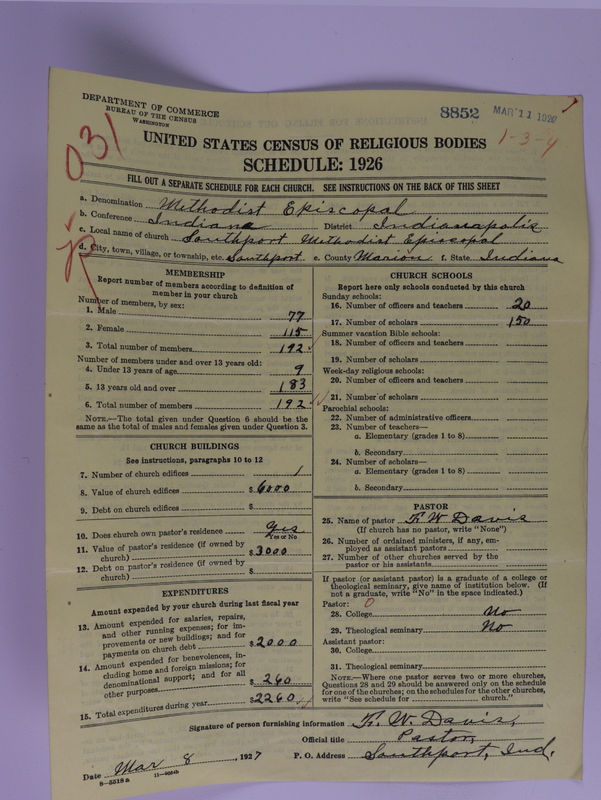 DEPARTMENT OF COMMERCE
BUREAU OF THE CENSUS
WASHINGTON
8852 MAR 11 1927
031
1-3-4
UNITED STATES CENSUS OF RELIGIOUS BODIES
SCHEDULE: 1926
FILL OUT A SEPARATE SCHEDULE FOR EACH CHURCH. SEE INSTRUCTIONS ON THE BACK OF THIS SHEET
a. Denomination Methodist Episcopal
b. Conference Indiana District Indianapolis
c. Local name of church Southport Methodist Episcopal
d. City, town, village, or township, etc. Southport e. County Marion f. State Indiana
MEMBERSHIP
Report number of members according to definition of
member in your church
Number of members, by sex:
1. Male 77
2. Female 115
3. Total number of members 192
Number of members under and over 13 years old:
4. Under 13 years of age 9
5. 13 years old and over 183
6. Total number of members 192
NOTE.—The total given under Question 6 should be the
same as the total of males and females given under Question 3.
CHURCH BUILDINGS
See instructions, paragraphs 10 to 12
7. Number of church edifices 1
8. Value of church edifices $6000
9. Debt on church edifices $
10. Does church own pastor's residence Yes
Yes or No
11. Value of pastor's residence (if owned by
church) $3000
12. Debt on pastor's residence (if owned by
church) $
EXPENDITURES
Amount expended by your church during last fiscal year
13. Amount expended for salaries, repairs,
and other running expenses; for im-
provements or new buildings; and for
payments on church debt $2000
14. Amount expended for benevolences, in-
cluding home and foreign missions; for
denominational support; and for all
other purposes $260
15. Total expenditures during year $2260
CHURCH SCHOOLS
Report here only schools conducted by this church
Sunday schools:
16. Number of officers and teachers 20
17. Number of scholars 150
Summer vacation Bible schools:
18. Number of officers and teachers
19. Number of scholars
Week-day religious schools:
20. Number of officers and teachers
21. Number of scholars
Parochial schools:
22. Number of administrative officers
23. Number of teachers—
a. Elementary (grades 1 to 8)
b. Secondary
24. Number of scholars—
a. Elementary (grades 1 to 8)
b. Secondary
PASTOR
25. Name of pastor F. W. Davis
(If church has no pastor, write "None")
26. Number of ordained ministers, if any, em-
ployed as assistant pastors
27. Number of other churches served by the
pastor or his assistants
If pastor (or assistant pastor) is a graduate of a college or
theological seminary, give name of institution below. (If
not a graduate, write "No" in the space indicated.)
Pastor: 0
28. College No
29. Theological seminary No
Assistant pastor:
30. College
31. Theological seminary
NOTE.—Where one pastor serves two or more churches,
Questions 28 and 29 should be answered only on the schedule
for one of the churches; on the schedules for the other churches,
write "See schedule for church."
Signature of person furnishing information F. W. Davis,
Official title Pastor,
Date Mar 8, 1927 P. O. Address Southport, Ind.
8-5518a